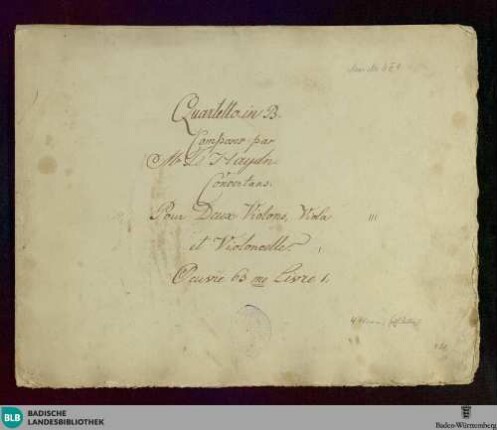 Quartetto in B.
Composeé par
Mr. Haydn
Concertans.
Pour Deux Violons, Viola
et Violoncelle.
Oeuvre 63 me Livre 1.
BLB
BADISCHE
LANDESBIBLIOTHEK
Baden-Württemberg